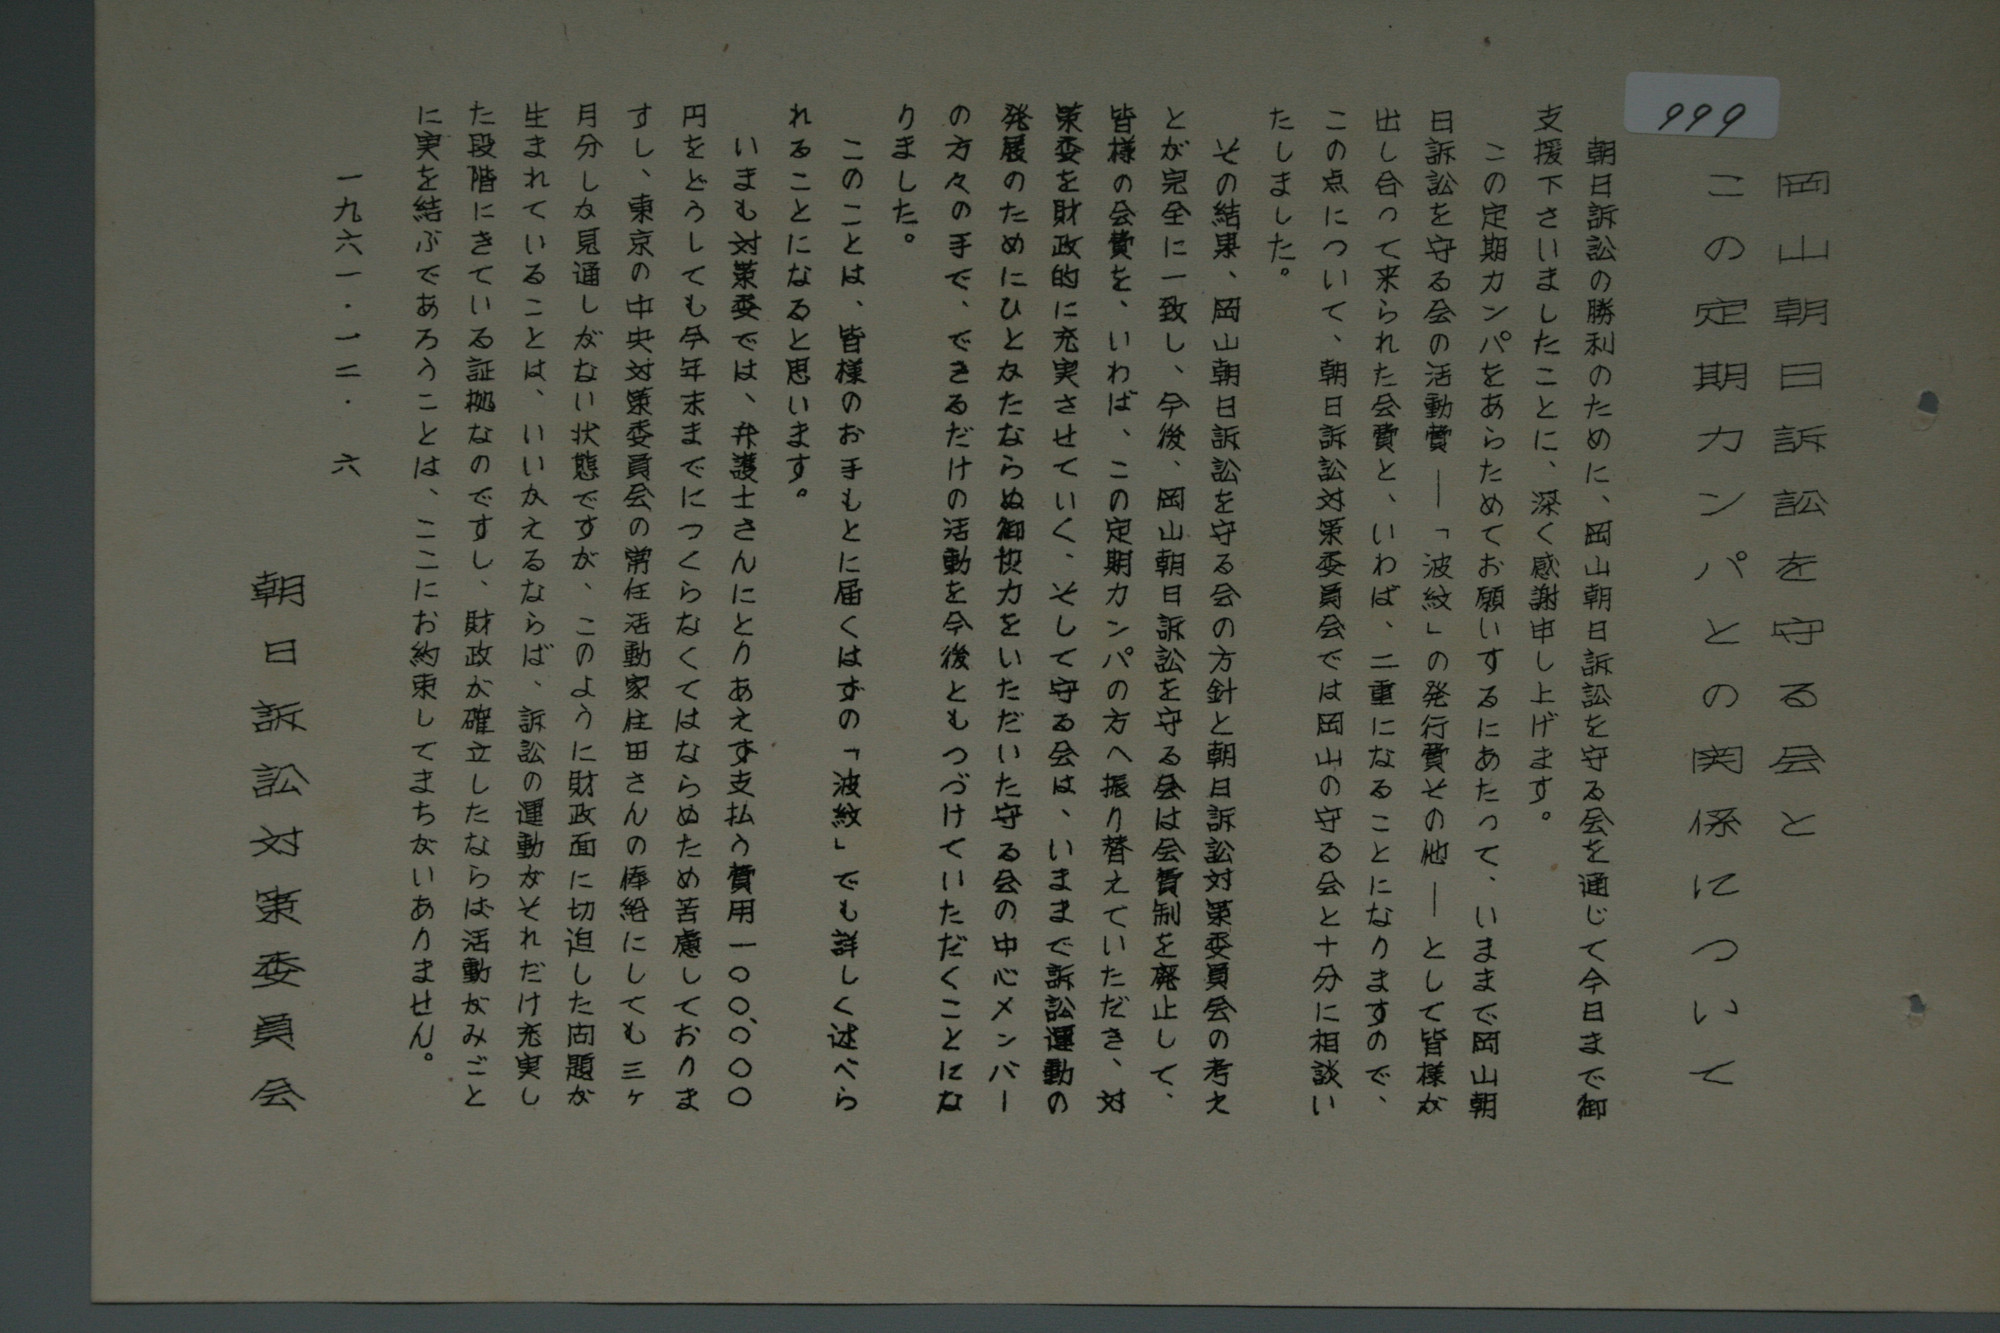 999
岡山朝日訴訟を守る会と
この定期カンパとの関係について
朝日訴訟の勝利のために、岡山朝日訴訟を守る会を通じて今日まで御
支援下さいましたことに、深く感謝申し上げます。
この定期カンパをあらためてお願いするにあたって、いままで岡山朝
日訴訟を守る会の活動費―「波紋」の発行費その他―として皆様が
出し合って来られた会費と、いわば、二重になることになりますので、
この点について、朝日訴訟対策委員会では岡山の守る会と十分に相談い
たしました。
その結果、岡山朝日訴訟を守る会の方針と朝日訴訟対策委員会の考え
とが完全に一致し、今後、岡山朝日訴訟を守る会は会費制を廃止して、
皆様の会費を、いわば、この定期カンパの方へ振り替えていただき、対
策委を財政的に充実させていく、そして守る会は、いままで訴訟運動の
発展のためにひとかたならぬ御協力をいただいた守る会の中心メンバー
の方々の手で、できるだけの活動を今後ともつづけていただくことにな
りました。
このことは、皆様のお手もとに届くはずの「波紋」でも詳しく述べら
れることになると思います。
いまも対策委では、弁護士さんにとりあえず支払う費用一〇〇、〇〇〇
円をどうしても今年末までにつくらなくてはならぬため苦慮しておりま
すし、東京の中央対策委員会の常任活動家住田さんの俸給にしても三ヶ
月分しか見通しがない状態ですが、このように財政面に切迫した問題が
生まれていることは、いいかえるならば、訴訟の運動がそれだけ充実し
た段階にきている証拠なのですし、財政が確立したならば活動がみごと
に実を結ぶであろうことは、ここにお約束してまちがいありません。
一九六一・一二・六
朝日訴訟対策委員会